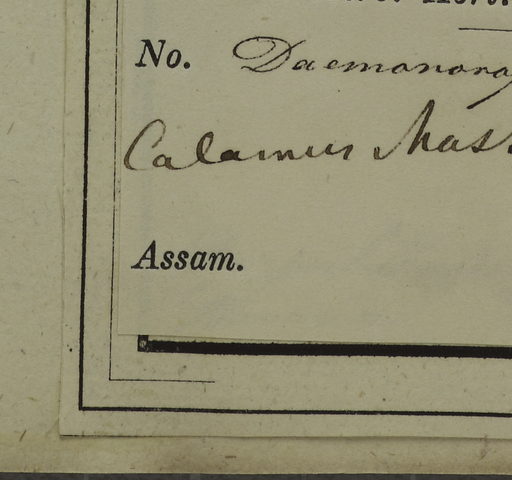 No. Daemonorop
Calamus Mas
Assam.